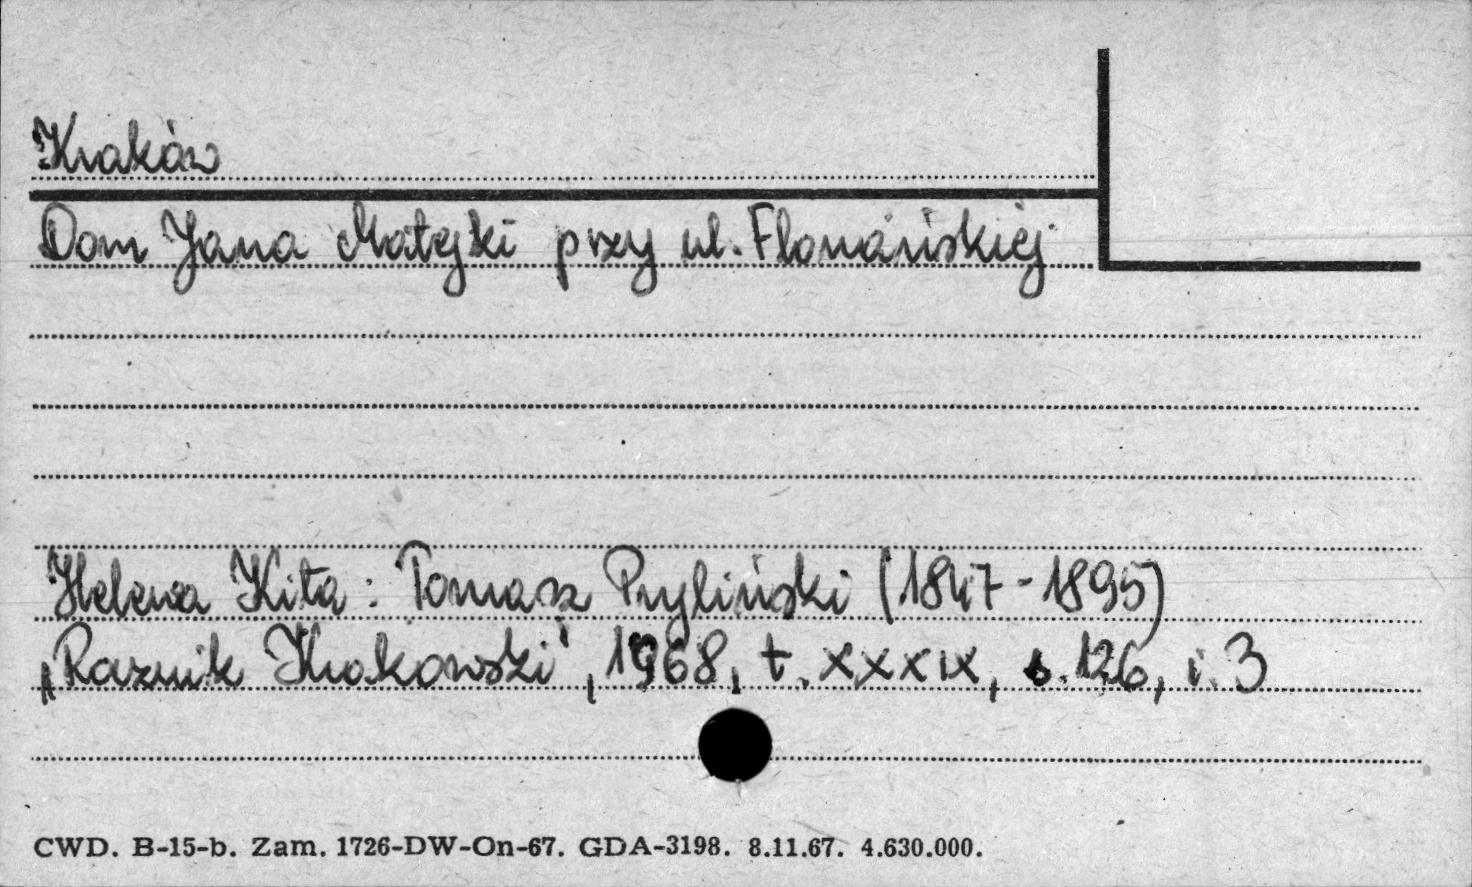 Kraków
Dom Jana Matejki przy ul. Floriańskiej
Helena Kita: Tomasz Pryliński (1847-1895)
„Rocznik Krakowski”, 1968, t. XXXIX, s. 126, i. 3
CWD. B-15-b. Zam. 1726-DW-On-67. GDA-3198. 8.11.67. 4.630.000.